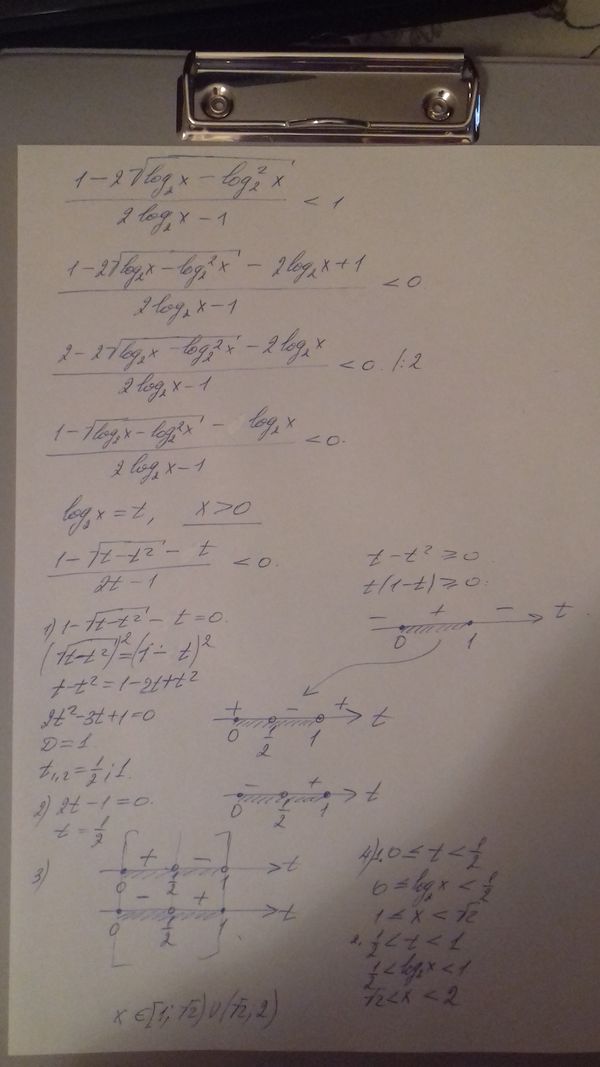 (1 − 2√(log₂x − log₂²x)) / (2log₂x − 1) < 1
(1 − 2√(log₂x − log₂²x) − 2log₂x + 1) / (2log₂x − 1) < 0
(2 − 2√(log₂x − log₂²x) − 2log₂x) / (2log₂x − 1) < 0. /:2
(1 − √(log₂x − log₂²x) − log₂x) / (2log₂x − 1) < 0.
log₂x = t, x > 0
(1 − √(t − t²) − t) / (2t − 1) < 0.
t − t² ≥ 0
t(1 − t) ≥ 0.
− + − t
0 1
1) 1 − √(t − t²) − t = 0.
(√(t − t²))² = (1 − t)²
t − t² = 1 − 2t + t²
2t² − 3t + 1 = 0
D = 1
t₁,₂ = 1/2; 1.
+ − + t
0 1/2 1
2) 2t − 1 = 0.
t = 1/2
− + t
0 1/2 1
3)
+ − t
0 1/2 1
− + t
0 1/2 1
4) 1. 0 ≤ t < 1/2
0 ≤ log₂x < 1/2
1 ≤ x < √2
2. 1/2 < t < 1
1/2 < log₂x < 1
√2 < x < 2
x ∈ [1; √2) ∪ (√2; 2)